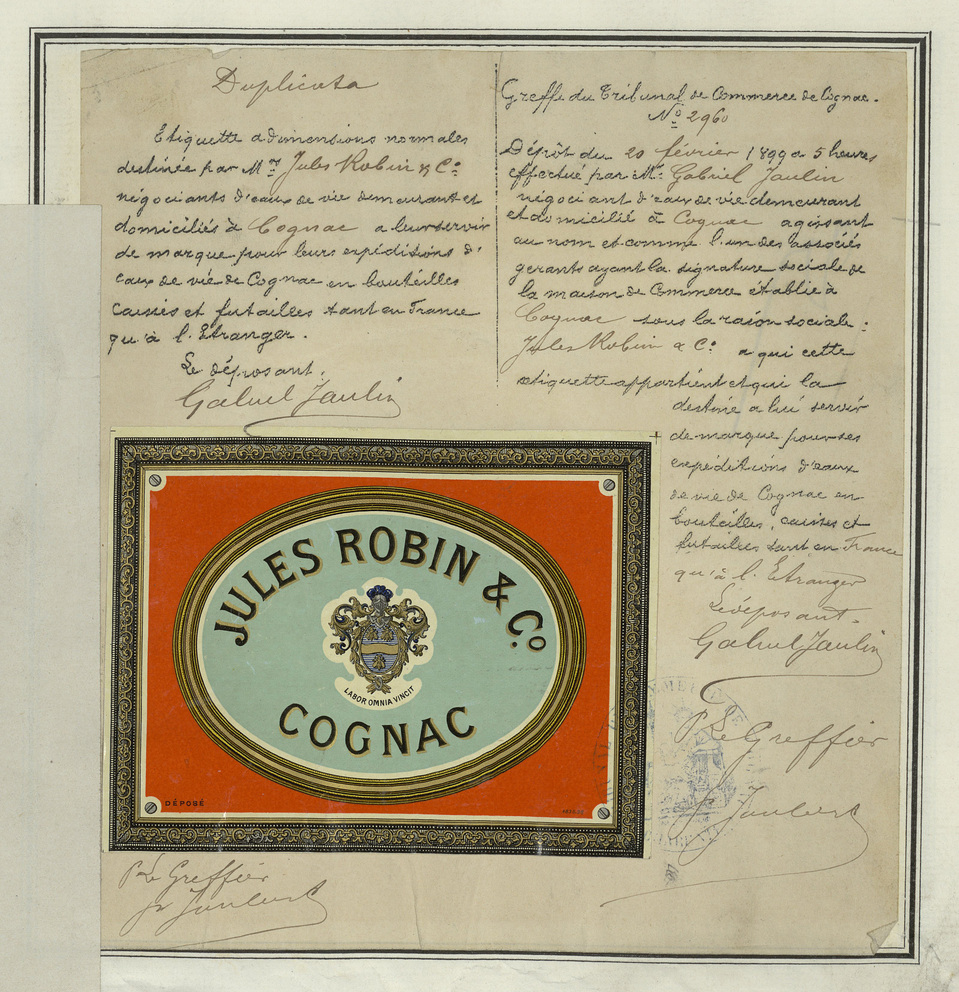 Duplicata
Etiquette a dimensions normales
destinée par Mrs Jules Robin & Co
négociants d'eaux de vie demeurant et
domiciliés à Cognac a leur servir
de marque pour leurs expéditions d'
eaux de vie de Cognac en bouteilles
caisses et futailles tant en France
qu'à l'Etranger.
Le déposant.
Gabriel Jaulin
Greffe du Tribunal de Commerce de Cognac.
No 2960
Dépôt du 20 février 1899 a 5 heures
effectué par Mr Gabriel Jaulin
négociant d'eaux de vie demeurant
et domicilié à Cognac agissant
au nom et comme l'un des associés
gerants ayant la signature sociale de
la maison de Commerce établie à
Cognac sous la raison sociale:
Jules Robin & Co a qui cette
etiquette appartient et qui la
destine a lui servir
de marque pour ses
expéditions d'eaux
de vie de Cognac en
bouteilles, caisses et
futailles tant en France
qu'à l'Etranger
Le déposant.
Gabriel Jaulin
Pr Le Greffier
JULES ROBIN & Co.
LABOR OMNIA VINCIT
COGNAC
DÉPOSÉ
Pr Le Greffier